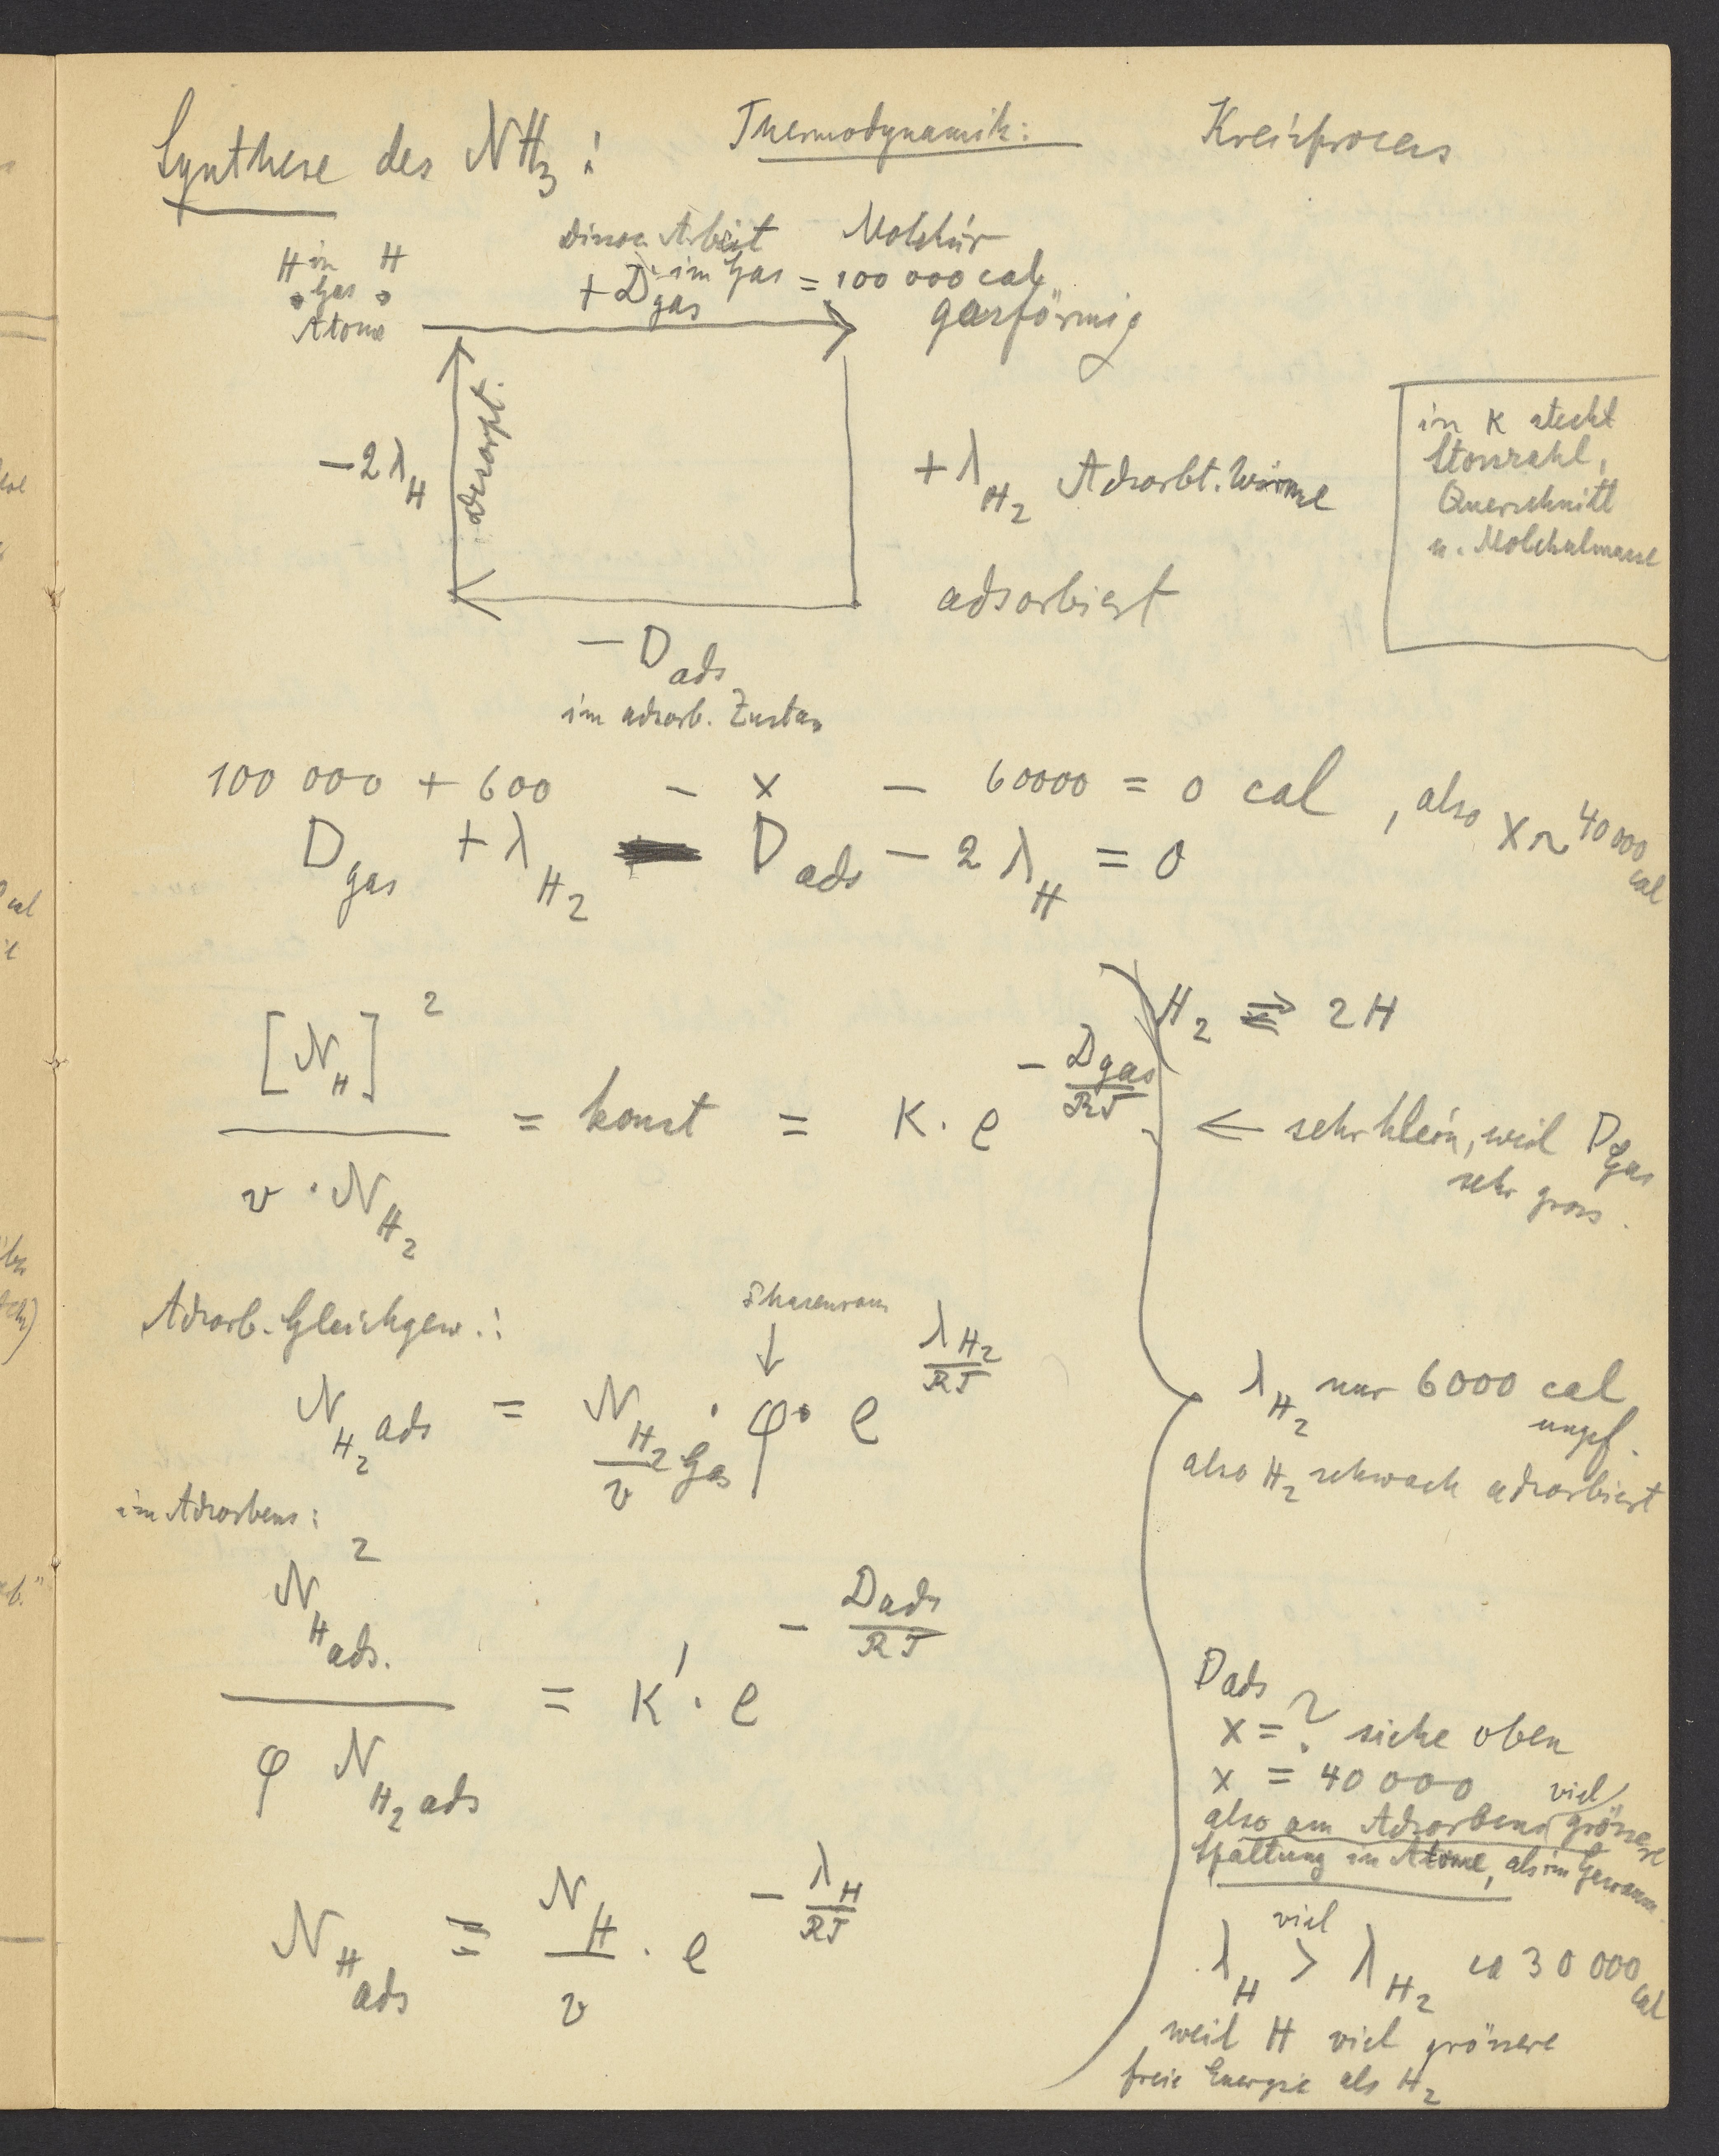 Synthese des NH3 : Thermodynamik: Kreisprocess
H in H
Gas
Atome
Dissoc Arbeit
im Gas = 100 000 cal
+ D gas
Molekür
gasförmig
- 2 λ H
desorpt.
+ λ H2 Adsorbt. Wärme
adsorbiert
- D ads
im adsorb. Zustan
in K steckt
Stosszahl,
Querschnitt
u. Molekulmasse
100 000 + 600 - x - 60000 = 0 cal , also x ~ 40 000 cal
D gas + λ H2 D ads - 2 λ H = 0
[N H]² / v · N H2 = konst = K · e - D gas / RT
H2 ⇄ 2 H
← sehr klein, weil D gas
sehr gross.
Adsorb. Gleichgew.:
Phasenraum
↓
N H2 ads = N H2 Gas / v · φ · e λ H2 / RT
λ H2 nur 6000 cal
ungef.
also H2 schwach adsorbiert
im Adsorbens:
N² H ads. / φ N H2 ads = K' · e - D ads / RT
D ads
x = ? siehe oben
x = 40 000
also am Adsorbens viel grössere
Spaltung in Atome, als im Gasraum.
N H ads = N H / v · e - λ H / RT
viel
λ H > λ H2 ca 30 000 cal
weil H viel grössere
freie Energie als H2